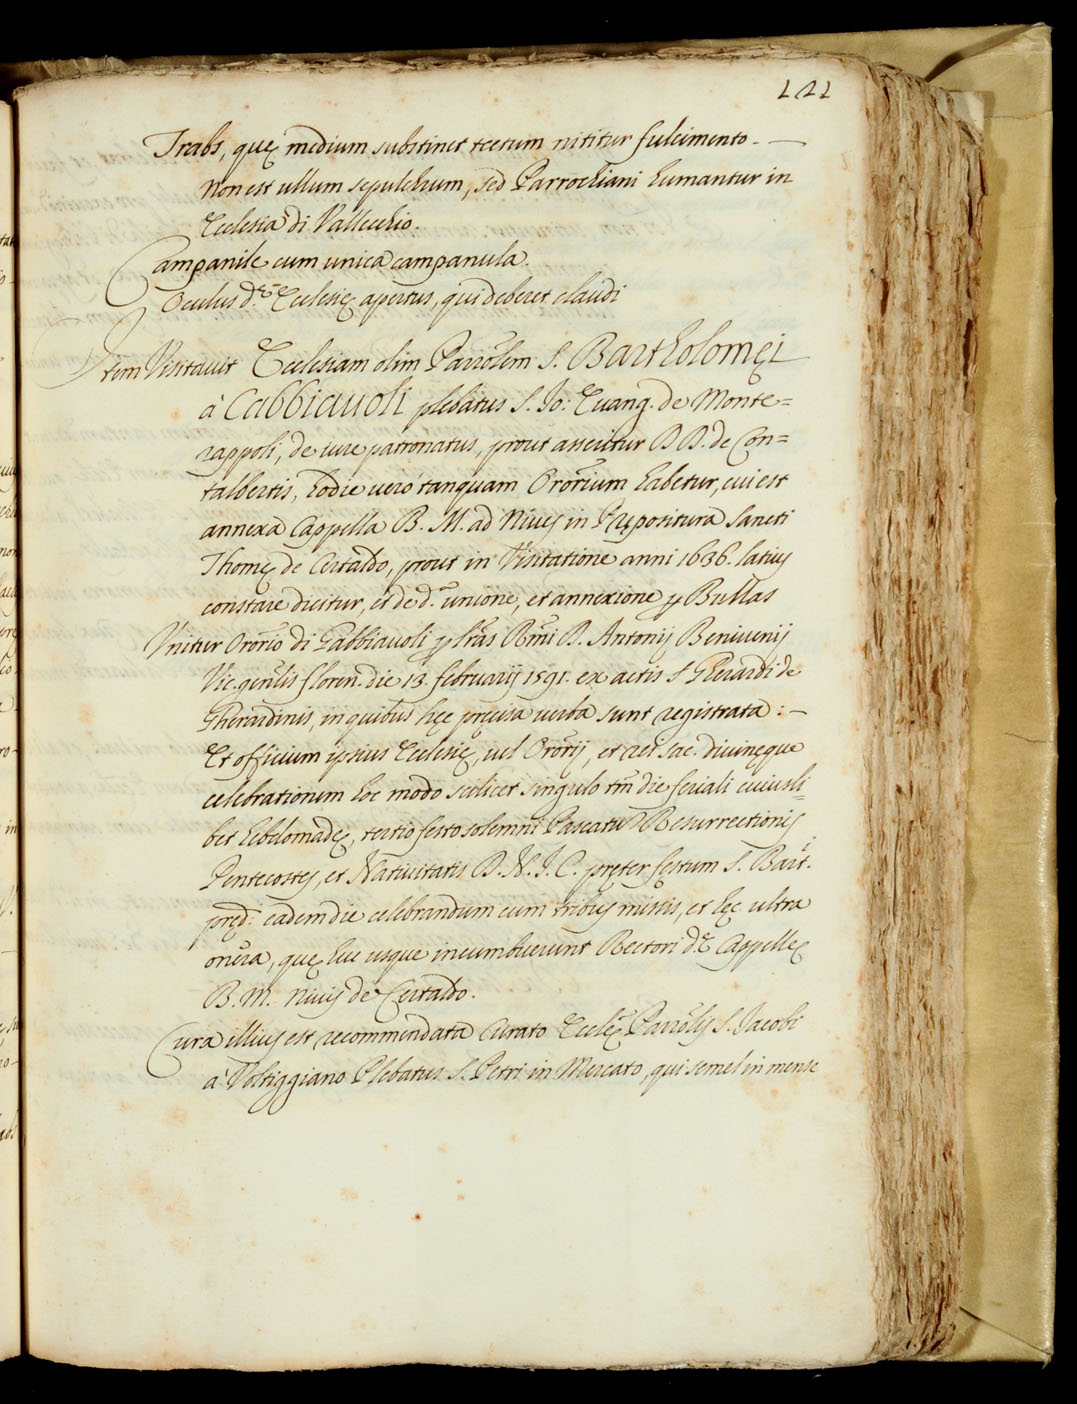 121
Trabs, quę medium substinet tectum nititur fulcimento. —
Non est ullum sepulchrum, sed Parrochiani humantur in
Ecclesia di Vallecchio.
Campanile cum unica campanula.
Oculus d.ę Ecclesię apertus, qui deberet claudi
Item Visitavit Ecclesiam olim Parrolem S. Bartholomęi
à Cabbiavoli plebatus S. Jo: Evang. de Monte=
rappoli, de iure patronatus, prout asseritur DD. de Con=
talbertis, hodie vero tanquam Ororium habetur, cui est
annexa Cappella B. M. ad Nives in Prępositura Sancti
Thomę de Certaldo, prout in Visitatione anni 1636. latius
constare dicitur, et de d.a unione, et annexione p Bullas
Vnitur Ororio di Gabbiavoli p lras Rmi D. Antonij Benivenij
Vic. gnlis Floren. die 13. februarij 1591. ex actis S Gherardi de
Gherardinis, in quibus hęc pręcisa verba sunt registrata: —
Et officium ipsius Ecclesię, vel Ororij, et ręi sac. divinęque
celebrationem hoc modo scilicet singulo tm die feriali cuiusli=
bet hebdomadę, tertio festo solemni Pascatu Resurrectionis
Pentecostes, et Nativitatis D. N. J. C. pręter festum S. Bart.
pręd. eadem die celebrandum cum tribus missis, et hęc ultra
onera, quę huc usque incumbuerunt Rectori d.ę Cappellę
B. M. Nivis de Certaldo.
Cura illius est recommendata Curato Ecclę Parrolis S. Jacobi
à Voltiggiano Plebatus S. Petri in Mercato, qui semel in mense